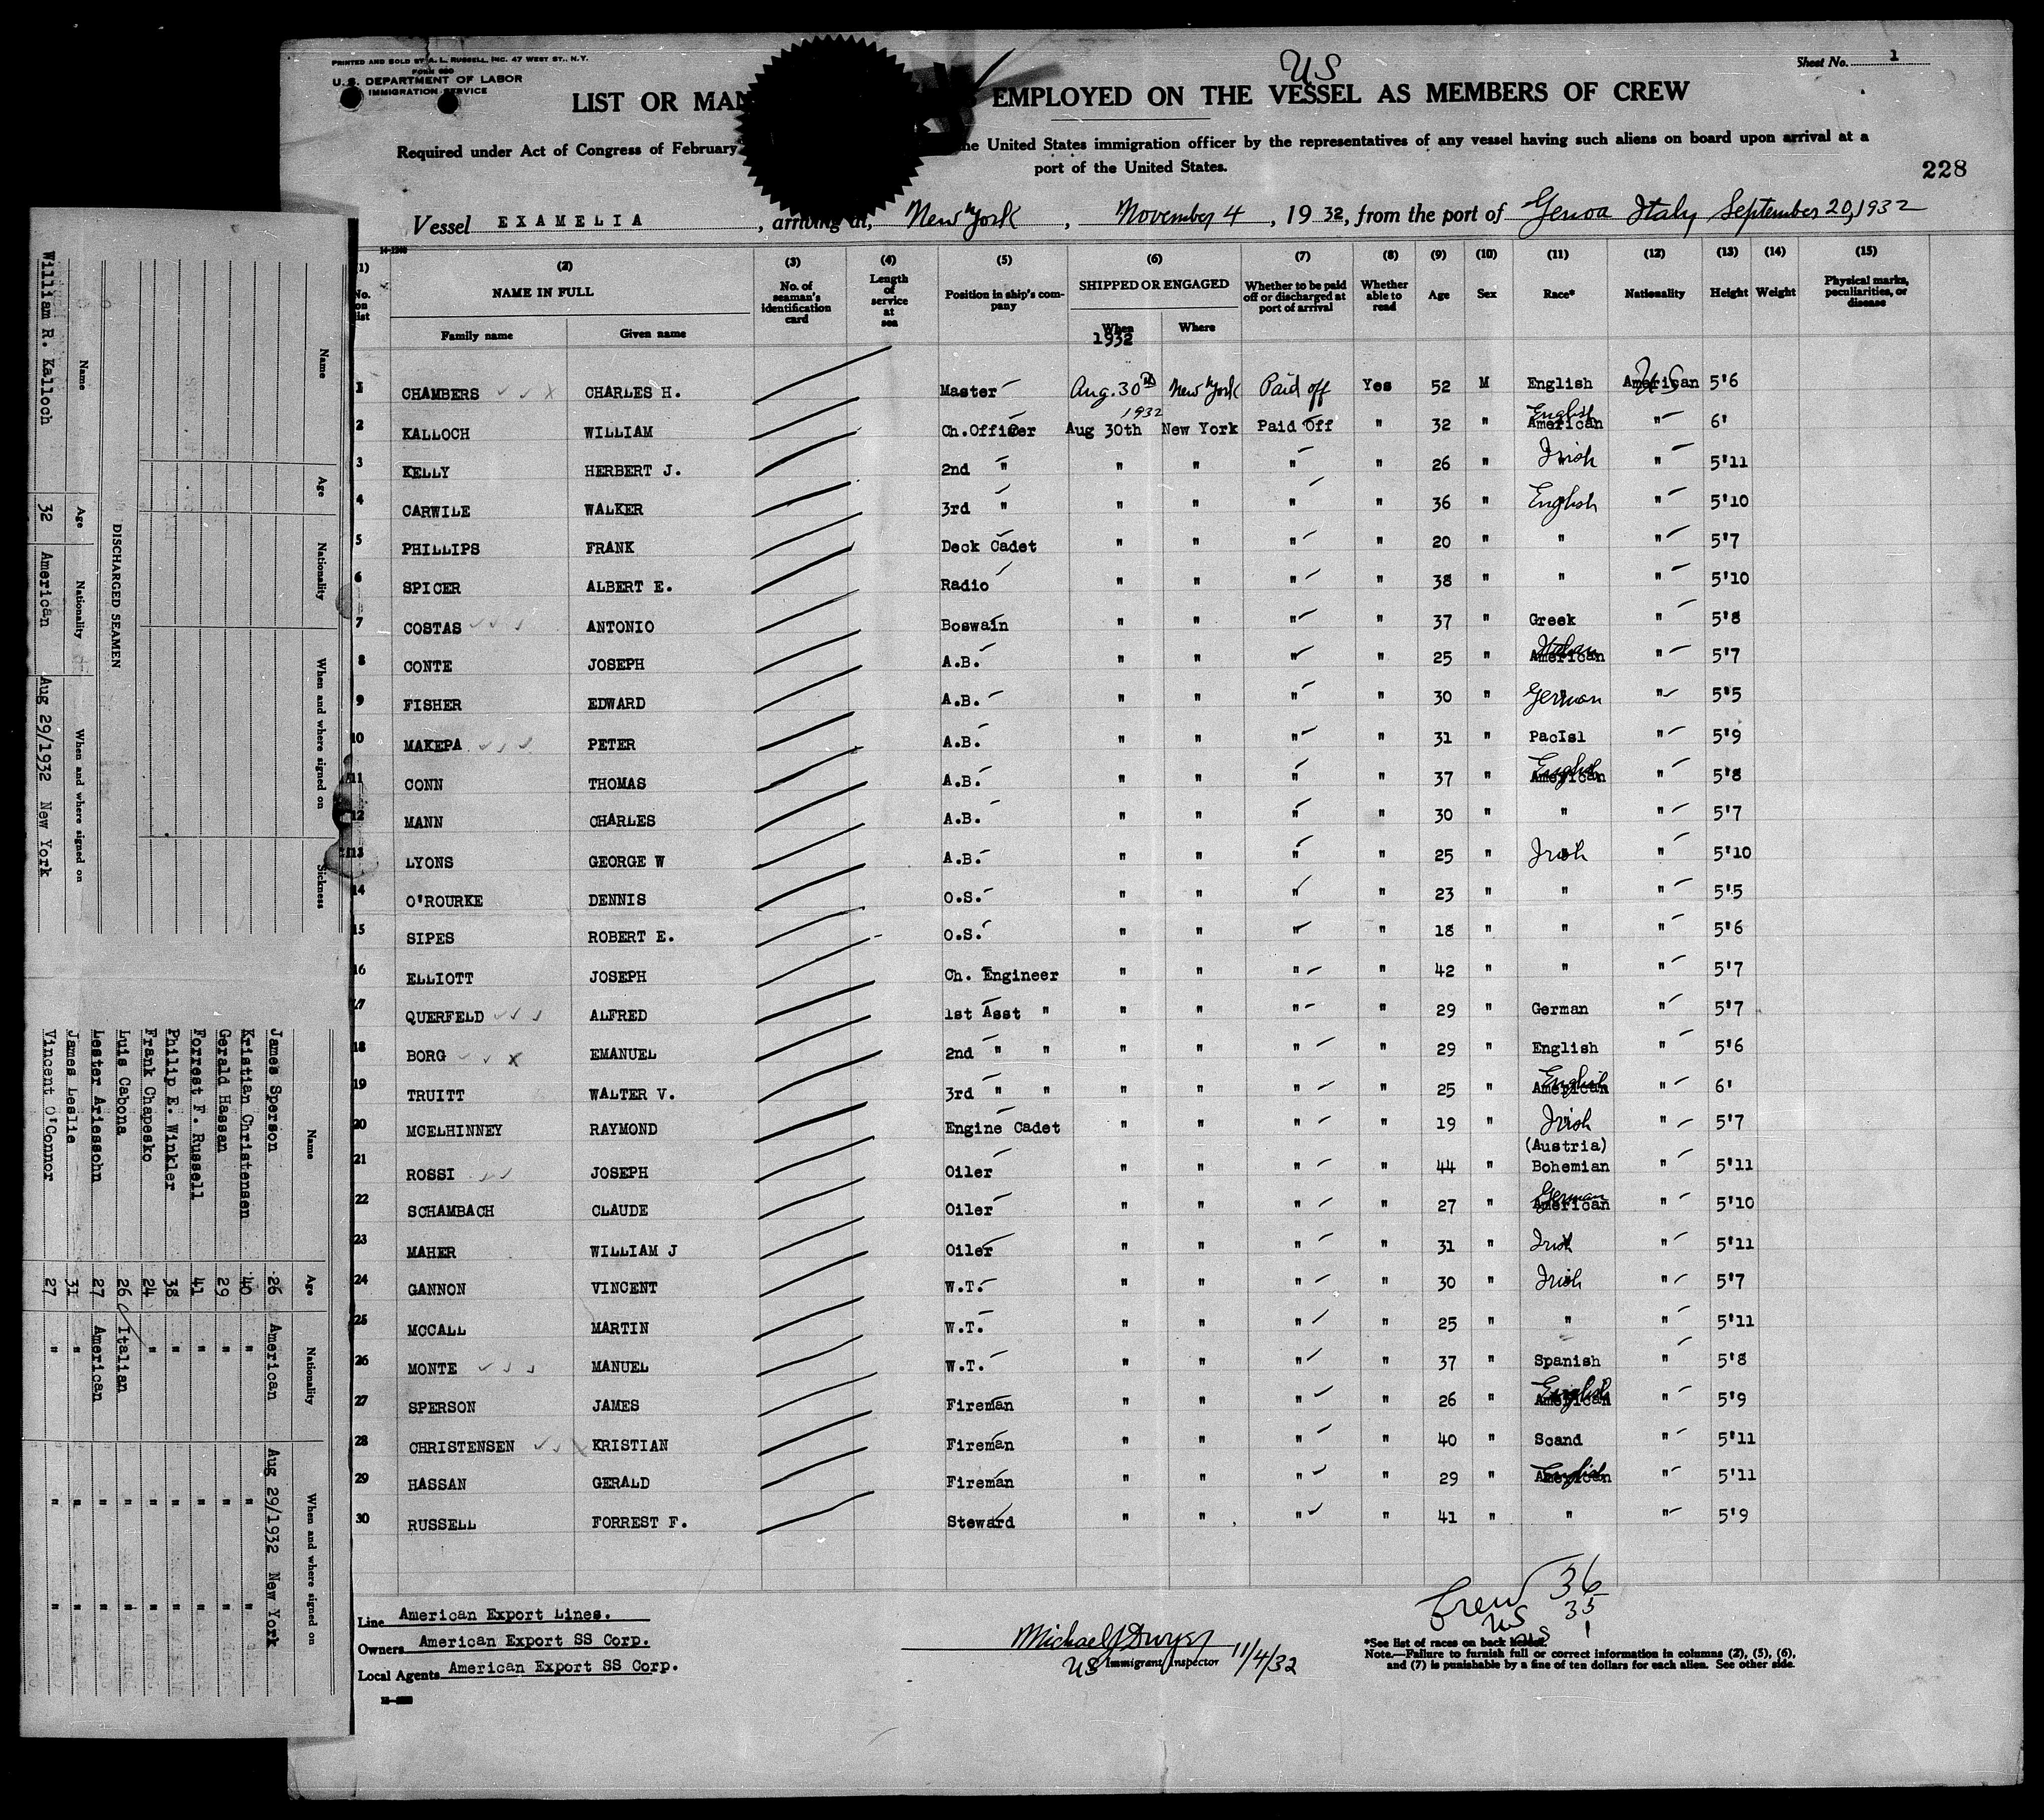 PRINTED AND SOLD BY A. L. RUSSELL, INC. 47 WEST ST., N.Y.
FORM 680
U. S. DEPARTMENT OF LABOR
IMMIGRATION SERVICE
US
Sheet No. 1
LIST OR MAN EMPLOYED ON THE VESSEL AS MEMBERS OF CREW
Required under Act of Congress of February the United States immigration officer by the representatives of any vessel having such aliens on board upon arrival at a
port of the United States.
228
Vessel EXAMELIA, arriving at, New York, November 4, 1932, from the port of Genoa Italy, September 20, 1932
14-1240
(1) No. on list (2) NAME IN FULL Family name Given name (3) No. of seaman's identification card (4) Length of service at sea (5) Position in ship's company (6) SHIPPED OR ENGAGED When 1932 Where (7) Whether to be paid off or discharged at port of arrival (8) Whether able to read (9) Age (10) Sex (11) Race* (12) Nationality (13) Height (14) Weight (15) Physical marks, peculiarities, or disease
1 CHAMBERS CHARLES H. Master Aug. 30th New York Paid off Yes 52 M English American US 5'6
2 KALLOCH WILLIAM Ch.Officer Aug 30th 1932 New York Paid Off " 32 " American English " 6'
3 KELLY HERBERT J. 2nd " " " " " 26 " Irish " 5'11
4 CARWILE WALKER 3rd " " " " " 36 " English " 5'10
5 PHILLIPS FRANK Deck Cadet " " " " 20 " " " 5'7
6 SPICER ALBERT E. Radio " " " " 38 " " " 5'10
7 COSTAS ANTONIO Boswain " " " " 37 " Greek " 5'8
8 CONTE JOSEPH A.B. " " " " 25 " American Italian " 5'7
9 FISHER EDWARD A.B. " " " " 30 " German " 5'5
10 MAKEPA PETER A.B. " " " " 31 " PacIsl " 5'9
11 CONN THOMAS A.B. " " " " 37 " American English " 5'8
12 MANN CHARLES A.B. " " " " 30 " " " 5'7
13 LYONS GEORGE W A.B. " " " " 25 " Irish " 5'10
14 O'ROURKE DENNIS O.S. " " " " 23 " " " 5'5
15 SIPES ROBERT E. O.S. " " " " 18 " " " 5'6
16 ELLIOTT JOSEPH Ch. Engineer " " " " 42 " " " 5'7
17 QUERFELD ALFRED 1st Asst " " " " " 29 " German " 5'7
18 BORG EMANUEL 2nd " " " " " " 29 " English " 5'6
19 TRUITT WALTER V. 3rd " " " " " " 25 " American English " 6'
20 MCELHINNEY RAYMOND Engine Cadet " " " " 19 " Irish " 5'7
21 ROSSI JOSEPH Oiler " " " " 44 " (Austria) Bohemian " 5'11
22 SCHAMBACH CLAUDE Oiler " " " " 27 " American German " 5'10
23 MAHER WILLIAM J Oiler " " " " 31 " Irish " 5'11
24 GANNON VINCENT W.T. " " " " 30 " Irish " 5'7
25 MCCALL MARTIN W.T. " " " " 25 " " " 5'11
26 MONTE MANUEL W.T. " " " " 37 " Spanish " 5'8
27 SPERSON JAMES Fireman " " " " 26 " American English " 5'9
28 CHRISTENSEN KRISTIAN Fireman " " " " 40 " Scand " 5'11
29 HASSAN GERALD Fireman " " " " 29 " American English " 5'11
30 RUSSELL FORREST F. Steward " " " " 41 " " " 5'9
Line American Export Lines.
Owners American Export SS Corp.
Local Agents American Export SS Corp.
Michael J Dwyer
US Immigrant Inspector 11/4/32
Crew 36
US 35
US 1
*See list of races on back hereof.
Note.—Failure to furnish full or correct information in columns (2), (5), (6),
and (7) is punishable by a fine of ten dollars for each alien. See other side.
Name Age Nationality When and where signed on Sickness
DISCHARGED SEAMEN
Name Age Nationality When and where signed on
William R. Kalloch 32 American Aug 29/1932 New York
Name Age Nationality When and where signed on
James Sperson 26 American Aug 29/1932 New York
Kristian Christensen 40 " " "
Gerald Hassan 29 " " "
Forrest F. Russell 41 " " "
Philip E. Winkler 38 " " "
Frank Chapesko 24 " " "
Luis Cabona 26 Italian " "
Lester Ariessohn 27 American " "
James Leslie 31 " " "
Vincent O'Connor 27 " " "